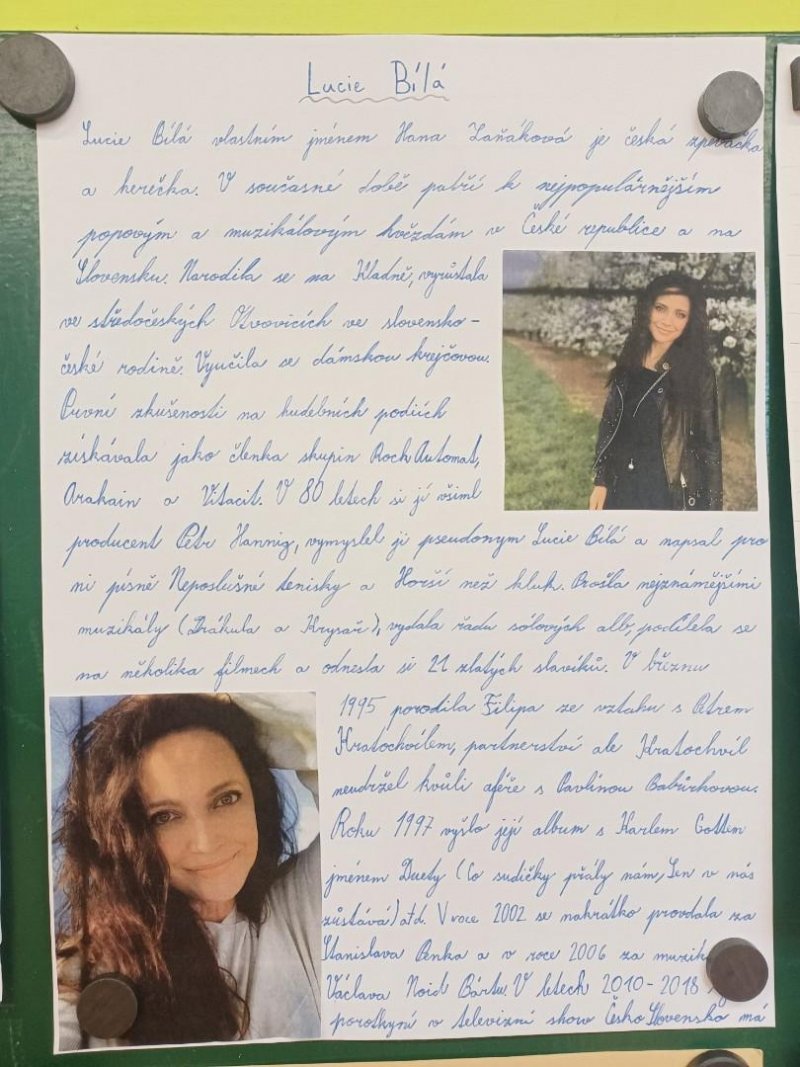 Lucie Bílá
Lucie Bílá vlastním jménem Hana Zaňáková je česká zpěvačka
a herečka. V současné době patří k nejpopulárnějším
popovým a muzikálovým hvězdám v České republice a na
Slovensku. Narodila se na Kladně, vyrůstala
ve středočeských Otvovicích ve slovensko-
české rodině. Vyučila se dámskou krejčovou.
První zkušenosti na hudebních podiích
získávala jako členka skupin Rock Automat,
Arakain a Vitacit. V 80 letech si jí všiml
producent Petr Hannig, vymyslel jí pseudonym Lucie Bílá a napsal pro
ni písně Neposlušné tenisky a Horší než kluk. Prošla nejznámějšími
muzikály (Drákula a Krysař), vydala řadu sólových alb, podílela se
na několika filmech a odnesla si 21 zlatých slavíků. V březnu
1995 porodila Filipa ze vztahu s Petrem
Kratochvílem, partnerství ale Kratochvíl
neudržel kvůli aféře s Pavlínou Babůrkovou.
Roku 1997 vyšlo její album s Karlem Gottem
jménem Duety (Co sudičky přály nám, Jen v nás
zůstává) atd. V roce 2002 se nakrátko provdala za
Stanislava Penka a v roce 2006 za
Václava Noid Bártu. V letech 2010-2018
porotkyní v televizní show Česko Slovensko má